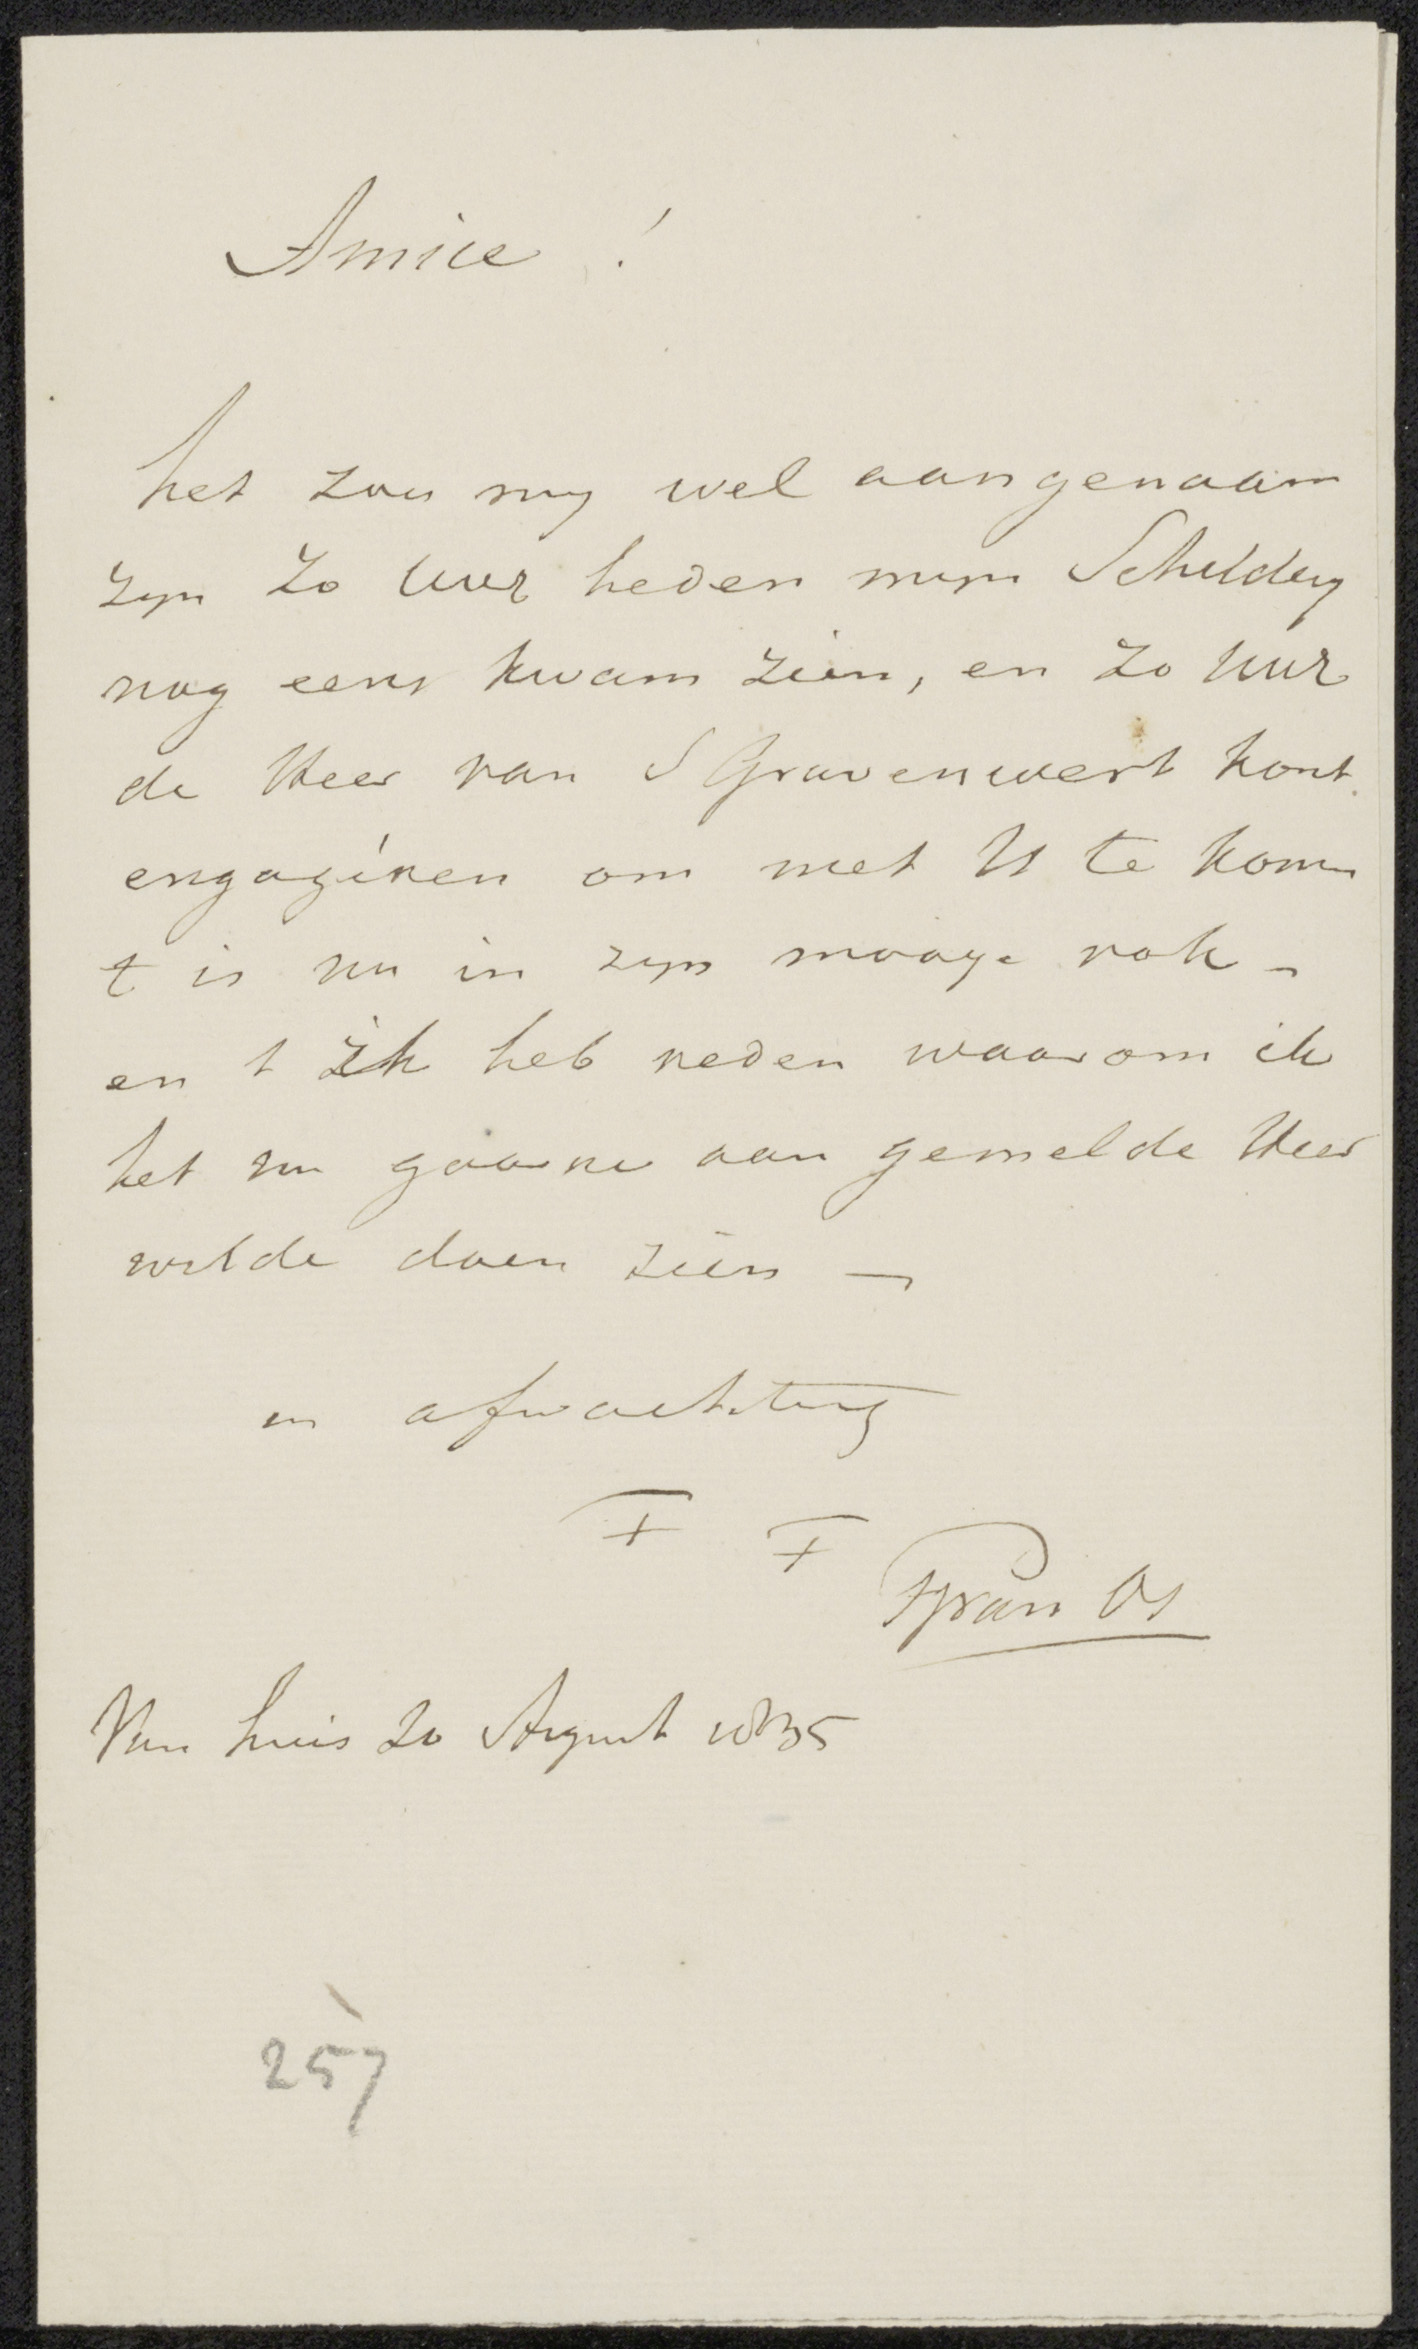 Amice !
het zou my wel aangenaam
zyn zo UWE heden myn Schildery
nog eens kwam zien, en zo UWE
de Heer van S Gravenwert kont
engagéren om met U te komen
t is nu in zyn mooye rok -
en t ik heb reden waarom ik
het nu gaarne aan gemelde Heer
wilde doen zien -
in afwachting
T T
PGvan Os
Van huis 20 August 1835
257